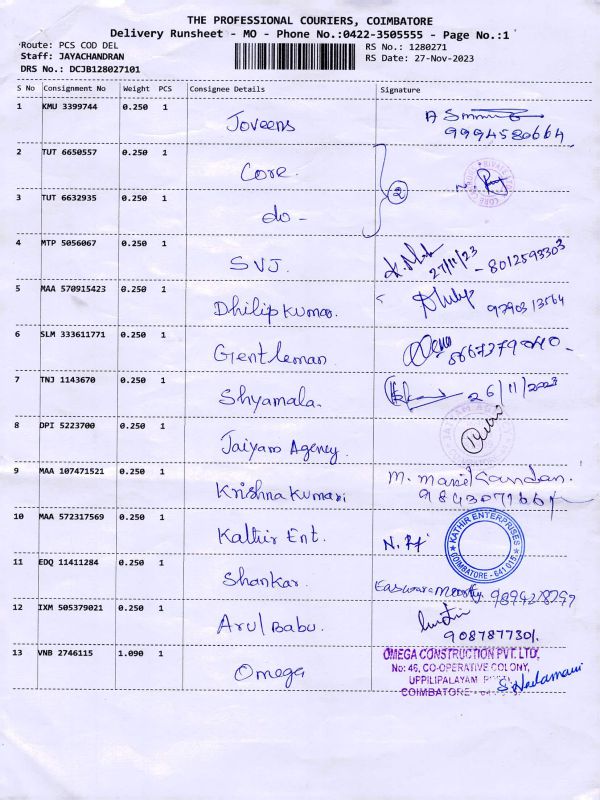 THE PROFESSIONAL COURIERS, COIMBATORE
Delivery Runsheet - MO - Phone No.:0422-3505555 - Page No.:1
Route: PCS COD DEL RS No.: 1280271
Staff: JAYACHANDRAN RS Date: 27-Nov-2023
DRS No.: DCJB128027101
S No Consignment No Weight PCS Consignee Details Signature
1 KMU 3399744 0.250 1 Joveens
9994580664
2 TUT 6650557 0.250 1 Core.
2
3 TUT 6632935 0.250 1 do -
4 MTP 5056067 0.250 1 SVJ. 27/11/23 - 8012593303
5 MAA 570915423 0.250 1 Dhilip Kumar. Dhilip
6 SLM 333611771 0.250 1 Gentleman
7 TNJ 1143670 0.250 1 Shyamala. 26/11/2023
8 DPI 5223700 0.250 1 Jaiyam Agency
9 MAA 107471521 0.250 1 Krishna Kumari
10 MAA 572317569 0.250 1 Kathir Ent.
KATHIR ENTERPRISES
COIMBATORE - 641 015
11 EDQ 11411284 0.250 1 Shankar.
12 IXM 505379021 0.250 1 Arul Babu.
13 VNB 2746115 1.090 1 Omega
OMEGA CONSTRUCTION PVT. LTD,
No: 46, CO-OPERATIVE COLONY,
UPPILIPALAYAM
COIMBATORE